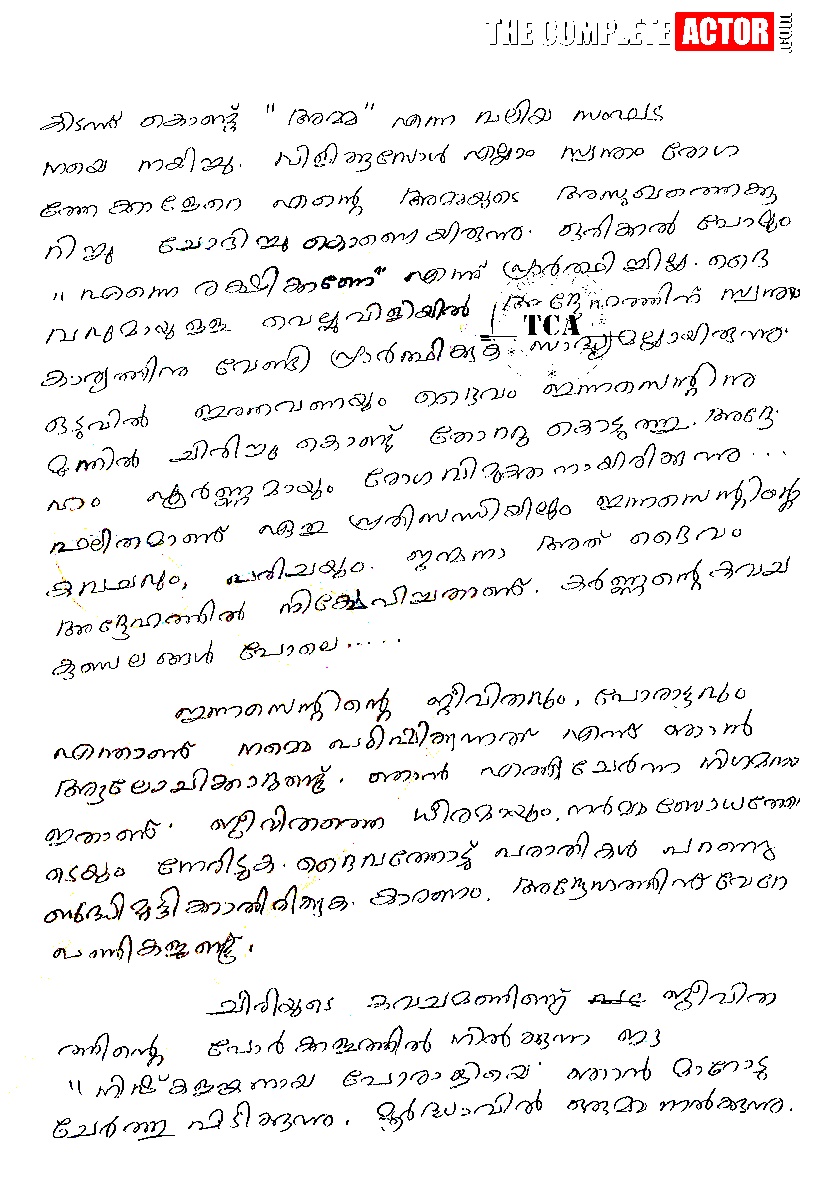 THE COMPLETE ACTOR
കിടന്ന് കൊണ്ട് "അമ്മ" എന്ന വലിയ സംഘട
നയെ നയിച്ചു. വിളിക്കുമ്പോൾ എല്ലാം സ്വന്തം രോഗ
ത്തേക്കാളേറെ എന്റെ അമ്മയുടെ അസുഖത്തെക്കു
റിച്ചു ചോദിച്ചു കൊണ്ടേയിരുന്നു. ഒരിക്കൽ പോലും
"എന്നെ രക്ഷിക്കണേ" എന്ന് പ്രാർത്ഥിച്ചില്ല. ദൈ
വവുമായുള്ള വെല്ലുവിളിയിൽ അദ്ദേഹത്തിന് സ്വന്തം
TCA
കാര്യത്തിനു വേണ്ടി പ്രാർത്ഥിക്കുക സാദ്ധ്യമല്ലായിരുന്നു.
ഒടുവിൽ ഇത്തവണയും ദൈവം ഇന്നസെന്റിനു
മുന്നിൽ ചിരിച്ചു കൊണ്ട് തോറ്റു കൊടുത്തു. അദ്ദേ
ഹം പൂർണ്ണമായും രോഗവിമുക്തനായിരിക്കുന്നു...
ഫലിതമാണ് ഏത് പ്രതിസന്ധിയിലും ഇന്നസെന്റിന്റെ
കവചവും, പരിചയും. ജന്മനാ അത് ദൈവം
അദ്ദേഹത്തിൽ നിക്ഷേപിച്ചതാണ്. കർണ്ണന്റെ കവച
കുണ്ഡലങ്ങൾ പോലെ.....
ഇന്നസെന്റിന്റെ ജീവിതവും, പോരാട്ടവും
എന്താണ് നമ്മെ പഠിപ്പിക്കുന്നത് എന്ന് ഞാൻ
ആലോചിക്കാറുണ്ട്. ഞാൻ എത്തിച്ചേർന്ന നിഗമനം
ഇതാണ്. ജീവിതത്തെ ധീരമായും, നർമ്മബോധത്തോ
ടെയും നേരിടുക. ദൈവത്തോട് പരാതികൾ പറഞ്ഞു
ബുദ്ധിമുട്ടിക്കാതിരിക്കുക. കാരണം, അദ്ദേഹത്തിന് വേറെ
പണികളുണ്ട്.
ചിരിയുടെ കവചമണിഞ്ഞ് ജീവിത
ത്തിന്റെ പോർക്കളത്തിൽ നിൽക്കുന്ന ഈ
"നിഷ്കളങ്കനായ പോരാളിയെ" ഞാൻ മാറോടു
ചേർത്തു പിടിക്കുന്നു. മൂർദ്ധാവിൽ ഉമ്മ നൽകുന്നു.